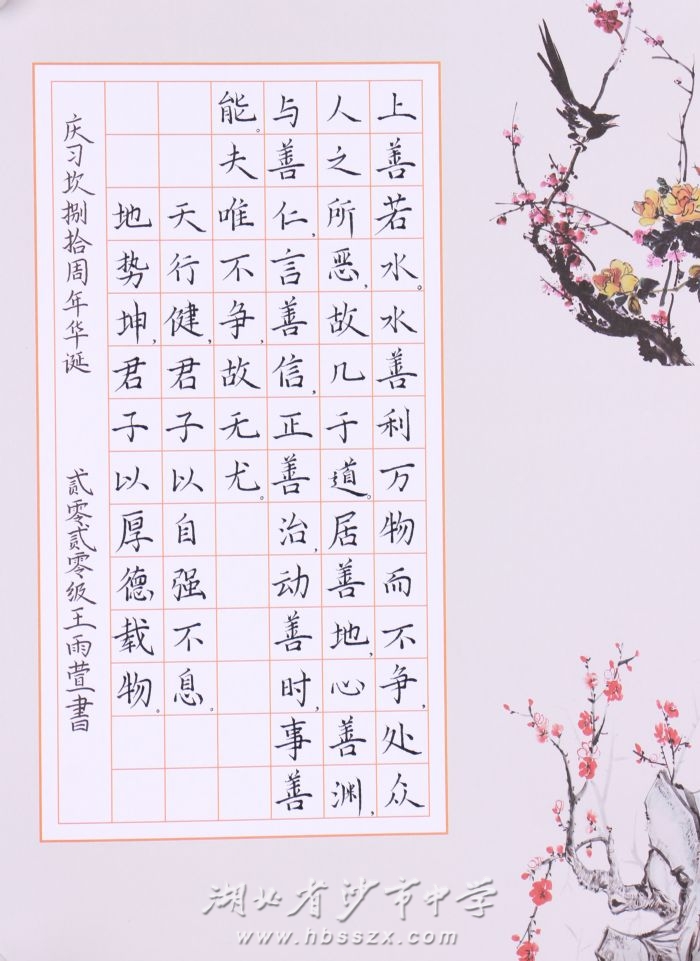 上善若水。水善利万物而不争,处众
人之所恶,故几于道。居善地,心善渊,
与善仁,言善信,正善治,动善时,事善
能。夫唯不争,故无尤。
天行健,君子以自强不息。
地势坤,君子以厚德载物。
庆习坎捌拾周年华诞
贰零贰零级王雨萱書
湖北省沙市中学
www.hbsszx.com